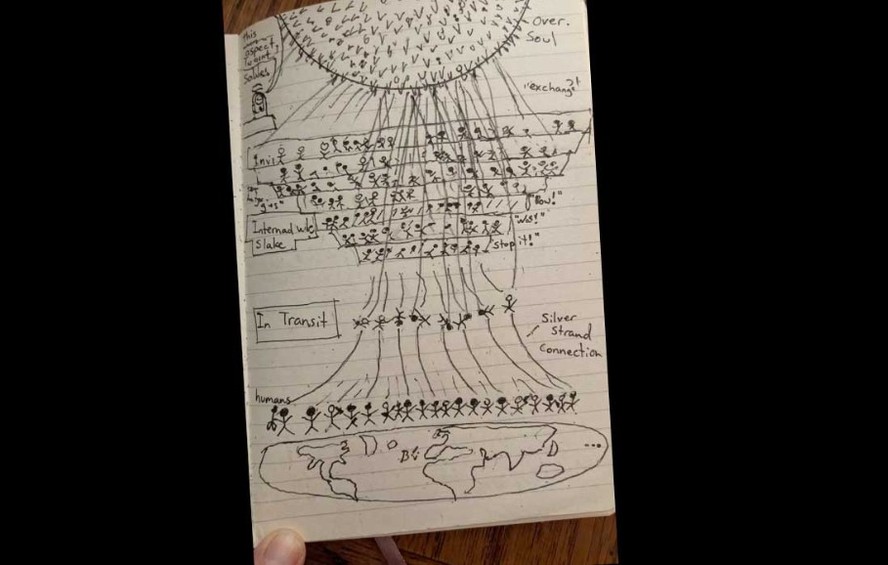 this
aspect
Solves
Over.
Soul
"exchang?"
Invis
Internad
Slake
"Row!"
stop it!"
In Transit
Silver
Strand
Connection
humans